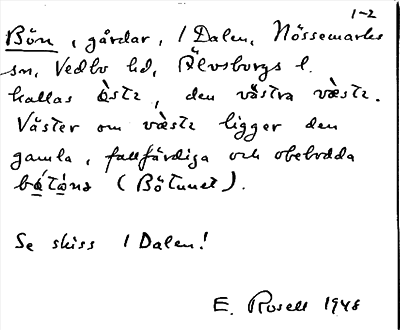 1-2
Bön, gårdar, i Dalen, Nössemarks
sn, Vedbo hd, Älvsborgs l.
kallas östz, den västra væstz.
Väster om væstz ligger den
gamla, fallfärdiga och obebodda
(Bötunet).
Se skiss i Dalen!
E. Rosell 1948